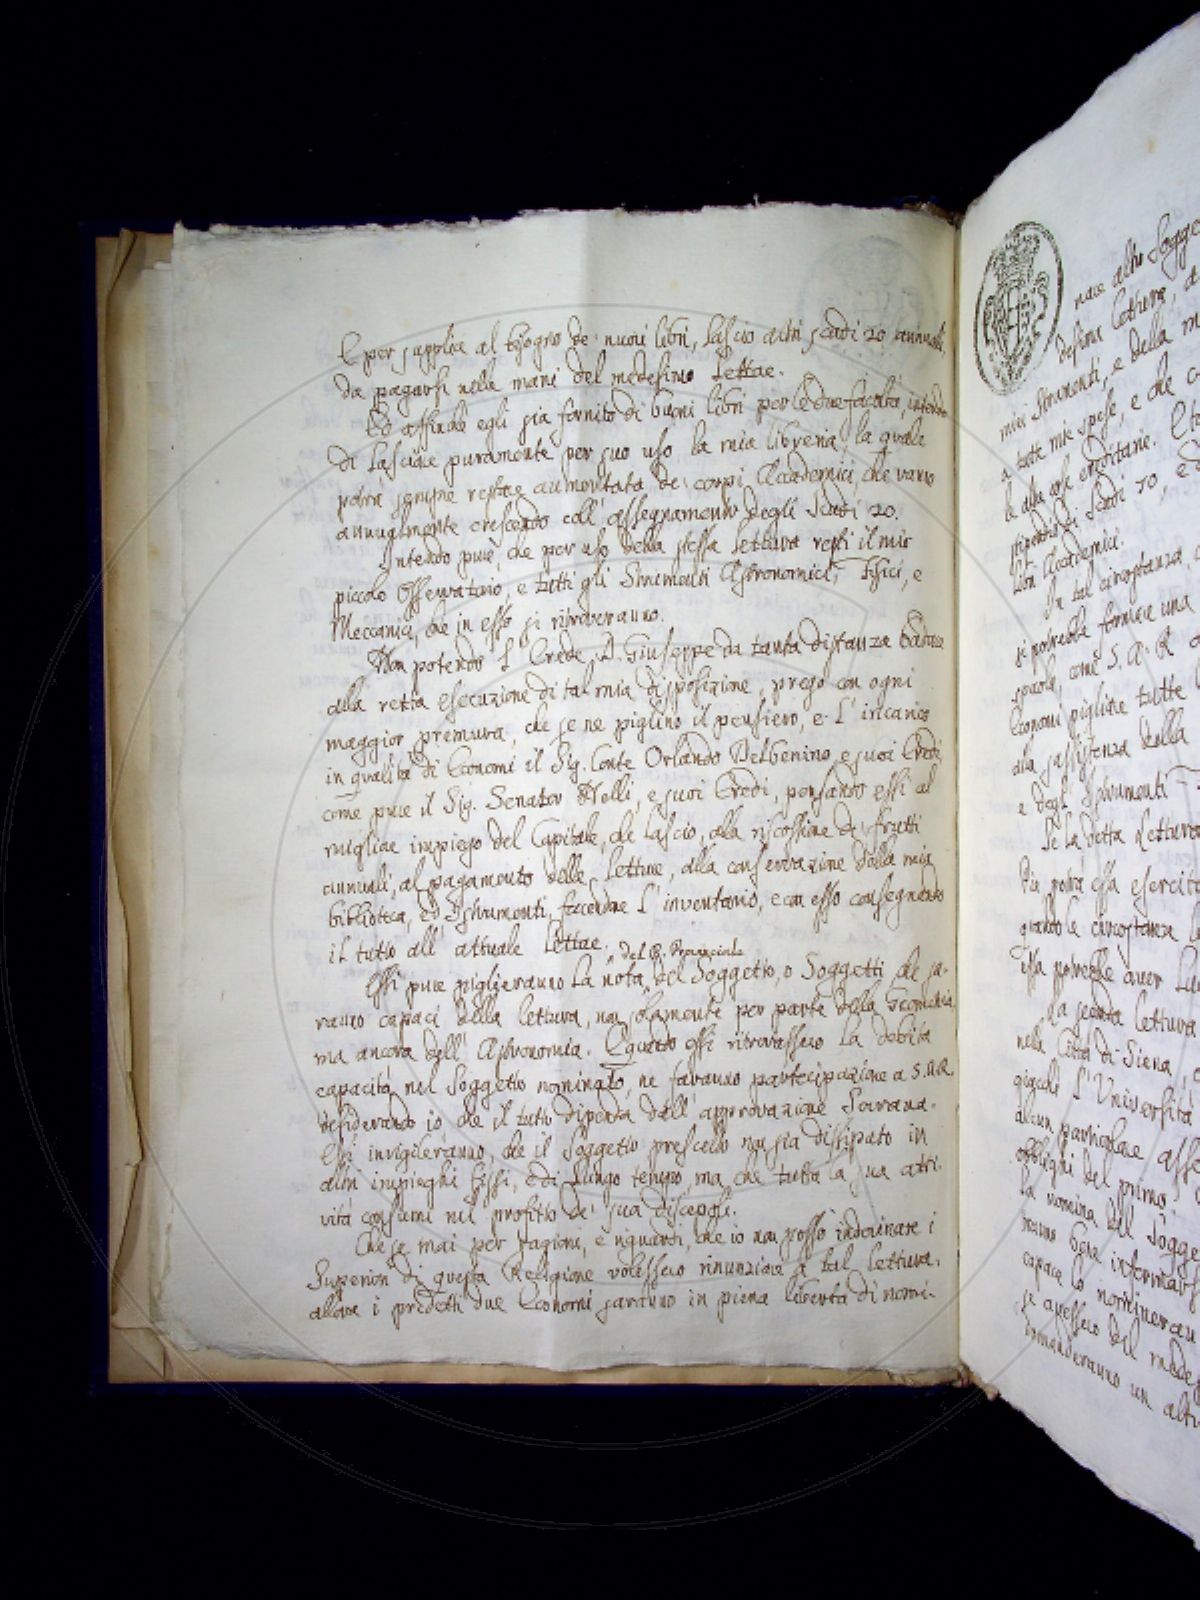 E per supplire al bisogno de' nuovi libri, lascio altri scudi 20 annuali,
da pagarsi nelle mani del medesimo Lettore.
Ed affinchè egli sia fornito di buoni libri per le due facoltà, intendo
di lasciare puramente per suo uso la mia libreria, la quale
potrà sempre restare aumentata de' corpi Accademici, che vanno
annualmente crescendo coll' assegnamento degli Scudi 20.
Intendo pure, che per uso della stessa lettura resti il mio
piccolo Osservatorio, e tutti gli Strumenti Astronomici, Fisici, e
Meccanici, che in esso si ritroveranno.
Non potendo l' Erede, D. Giuseppe da tanta distanza badare
alla retta esecuzione di tal mia disposizione, prego con ogni
maggior premura, che se ne piglino il pensiero, e l' incarico
in qualità di Economi il Sig. Conte Orlando Delbenino, e suoi Eredi,
come pure il Sig. Senator Nelli, e suoi Eredi, pensando essi al
miglior impiego del Capitale, che lascio, alla riscossione de' frutti
annuali, al pagamento delle Letture, alla conservazione della mia
biblioteca, ed Istrumenti, facendone l' inventario, e con esso consegnando
il tutto all' attuale Lettore.
del P. Provinciale
Essi pure piglieranno la nota del Soggetto, o Soggetti che sa-
ranno capaci della lettura, non solamente per parte della Geometria,
ma ancora dell' Astronomia. E quando essi ritrovassero la debita
capacità nel Soggetto nominato, ne faranno partecipazione a S.A.R.
desiderando io che il tutto dipenda dall' approvazione Sovrana.
Essi invigileranno, che il Soggetto prescelto non sia dissipato in
altri impieghi fissi, e di lungo tempo, ma che tutta la sua atti-
vità consumi nel profitto de' suoi discepoli.
Che se mai per ragioni, e riguardi, che io non posso indovinare i
Superiori di questa Religione volessero rinunziare a tal lettura,
allora i predetti due Economi saranno in piena libertà di nomi-
nare altri Sogge
desima lettura, a
miei Strumenti, e della m
a tutte mie spese, e che
le altre cose ereditarie. E
stipendio di Scudi 70, e
libri Accademici.
In tal circostanza,
si potrebbe formare una
scuola, come S. A. R.
Economi pigliare tutte
alla sussistenza della
e degl' Istrumenti
Se la detta Lettura
Pia potrà essa esercita
quando le circostanze
essa potrebbe aver
La seconda lettura
nella Città di Siena,
giacchè l' Università
alcun particolare asse
obblighi del primo.
La nomina del Sogge
ranno bene informarsi
capace lo nomineran
se avessero del medes
domanderanno un altr